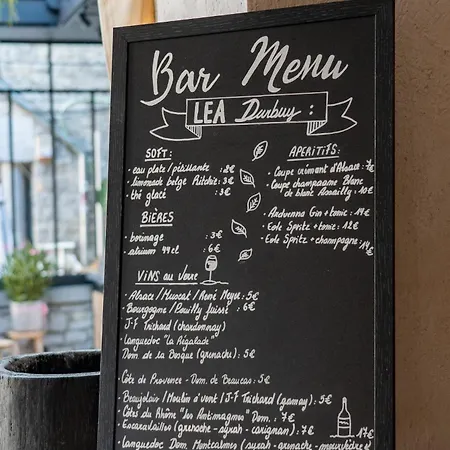 Bar Menu
LEA Durbuy :
SOFT :
· eau plate / pétillante : 2€
· limonade belge Ritchie : 3€
· thé glacé : 3€
BIÈRES
· borinage : 3€
· atrium 44 cl : 6€
VINS au verre
· Alsace / Muscat / René Meyer : 5€
· Bourgogne / Pouilly fuissé : 6€
J-F Trichard (chardonnay)
Languedoc "la Régalade"
Dom. de la Bosque (grenache) : 5€
Côte de Provence - Dom. de Beaucas : 5€
Beaujolais / Moulin à vent / J-F Trichard (gamay) : 5€
Côtes du Rhône "les Antimagnes" Dom. : 7€
Escaravailles (grenache - syrah - carignan) : 7€
Languedoc Dom. Montcalmès (syrah - grenache - mourvèdre)
17€
APERITIFS :
· Coupe crémant d'Alsace : 7€
· Coupe champagne Blanc
de blanc Assailly : 10€
· Arduenna Gin + tonic : 14€
· Eole Spritz + tonic : 12€
· Eole Spritz + champagne : 14€